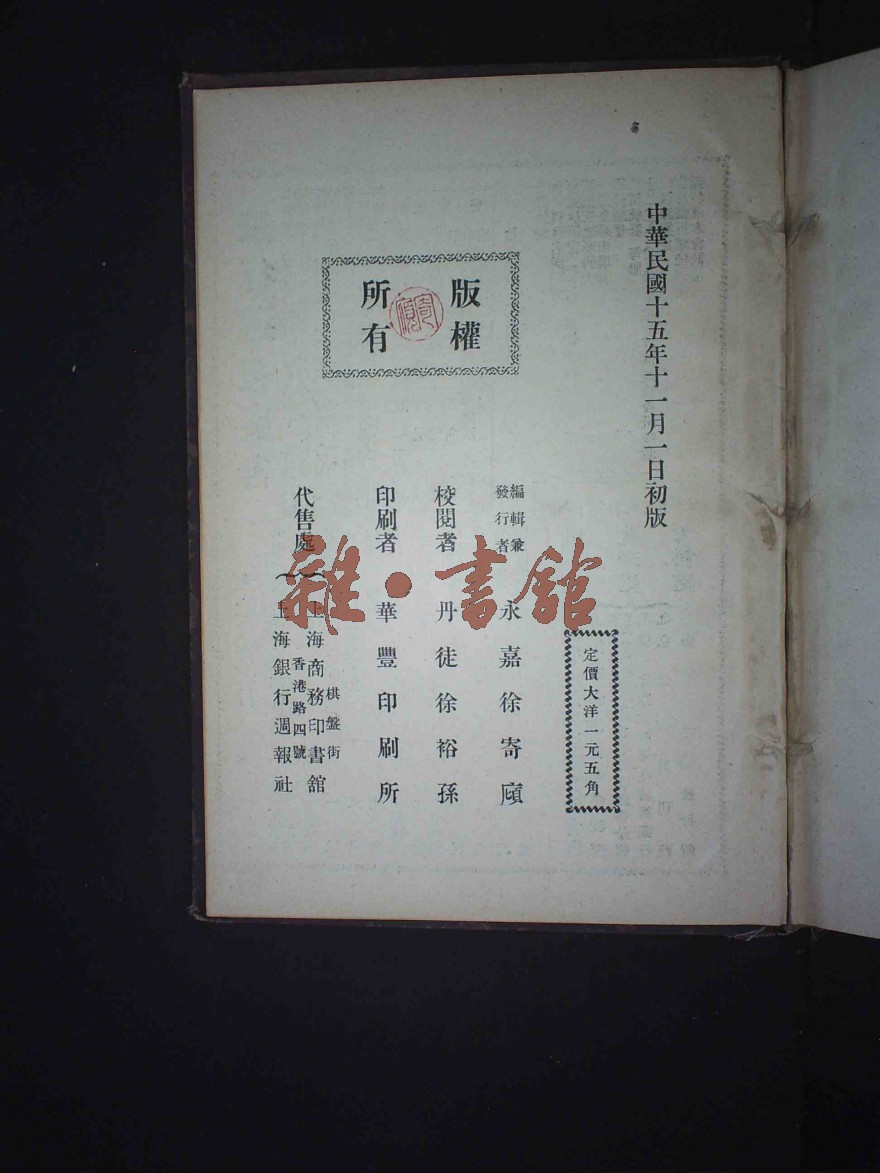 中華民國十五年十一月一日初版
版權
所有
定價大洋一元五角
編輯兼
發行者
永嘉徐寄廎
校閱者 丹徒徐裕孫
印刷者 華豐印刷所
代售處
棋盤街
上海商務印書館
香港路四號
上海銀行週報社
雜·書館